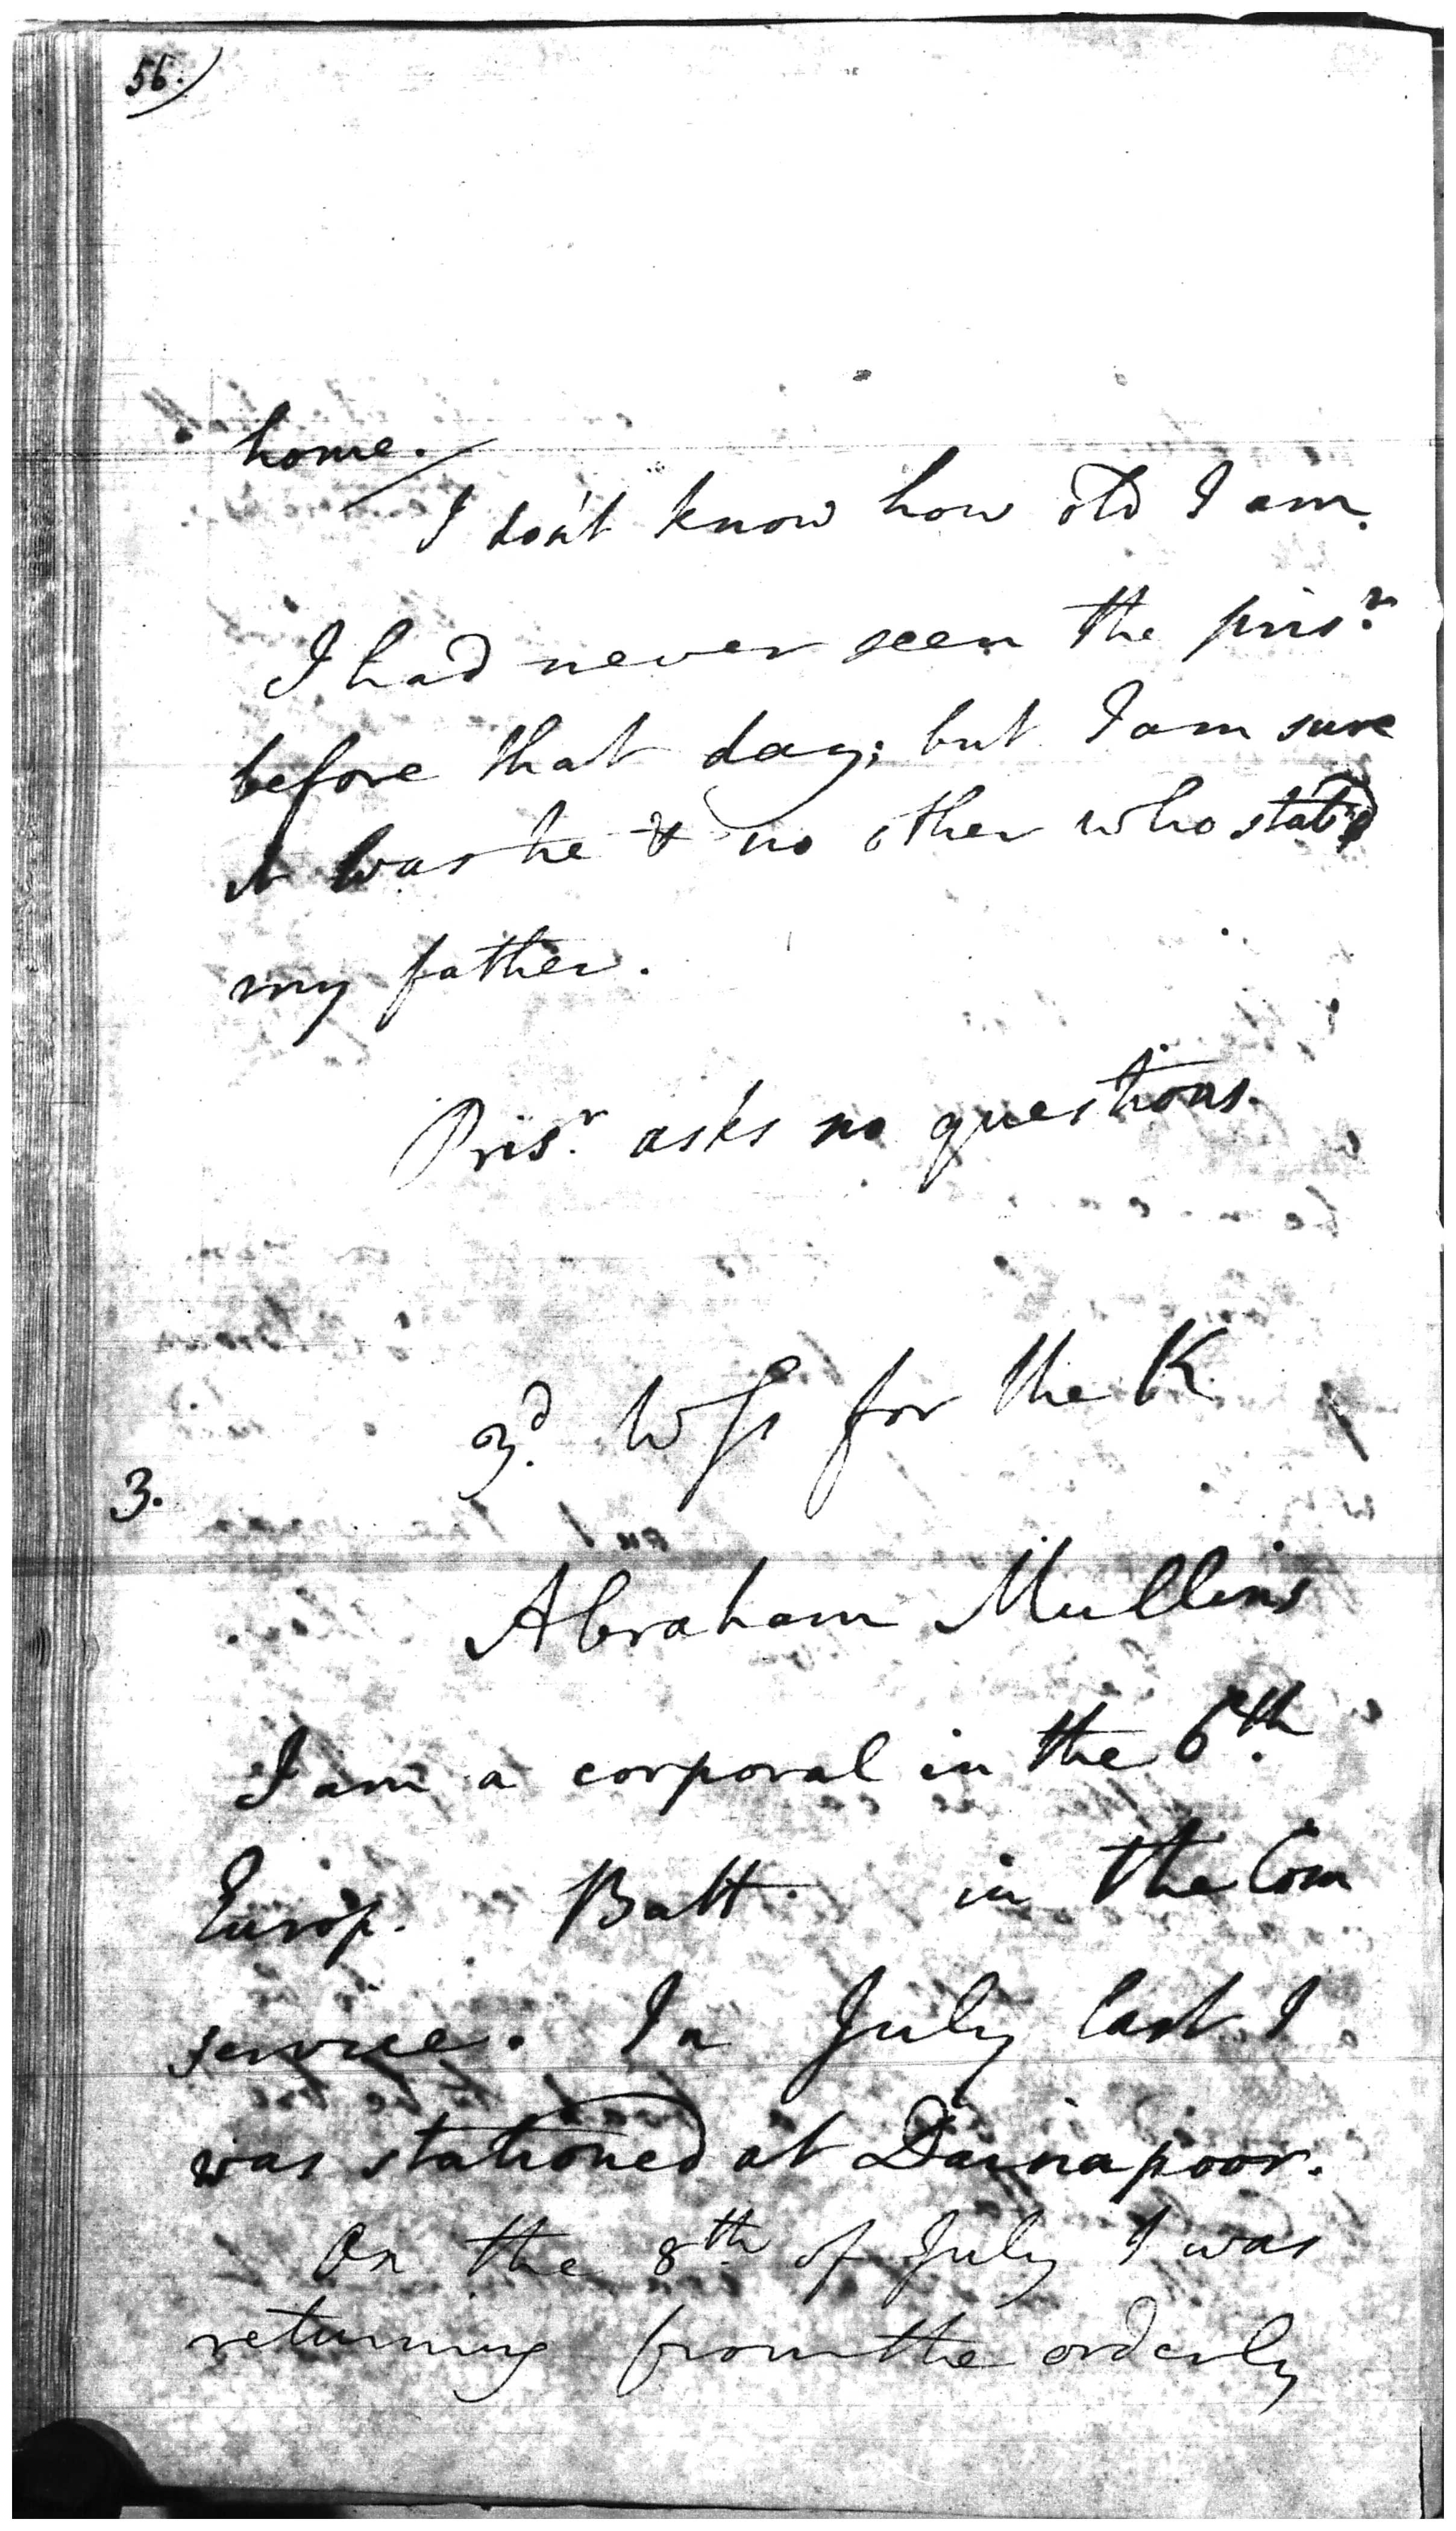 56.
home.
I don't know how old I am.
I had never seen the pris.r
before that day; but I am sure
it was he & no other who stab'd
my father.
Pris.r asks no questions.
3.d Wss for the K.
3.
Abraham Mullins
I am a corporal in the 6.th
Europ. Batt. in the Com
service. In July last I
was stationed at Dainapoor.
On the 8th of July I was
returning from the orderly